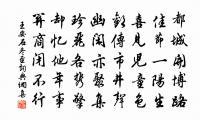 都城開博路
佳節一陽生
喜見兒童色
歡傳市井聲
幽閑亦聚集
珍麗各攜擎
卻憶他年事
關商閉不行
王安石冬至詞典網集